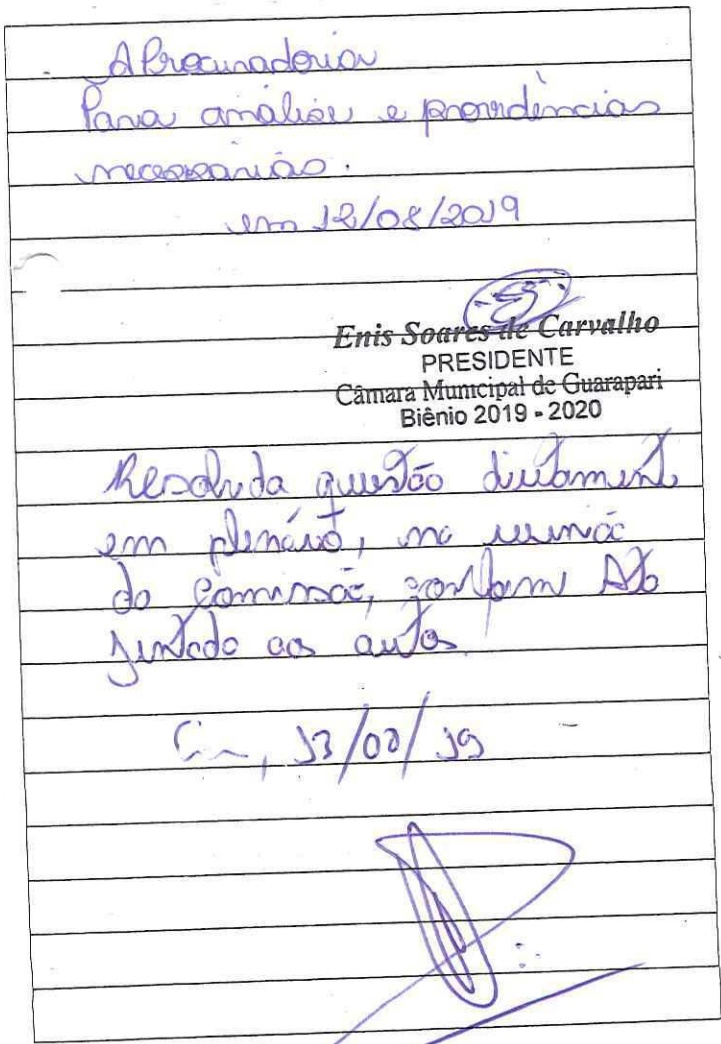 A Procuradoria
Para análise e providências
necessárias.
em 12/08/2019
Enis Soares de Carvalho
PRESIDENTE
Câmara Municipal de Guarapari
Biênio 2019 - 2020
Resolvida questão diretament
em plenário, na reunião
da Comissão, conform Ato
juntado aos autos.
Em, 13/08/19